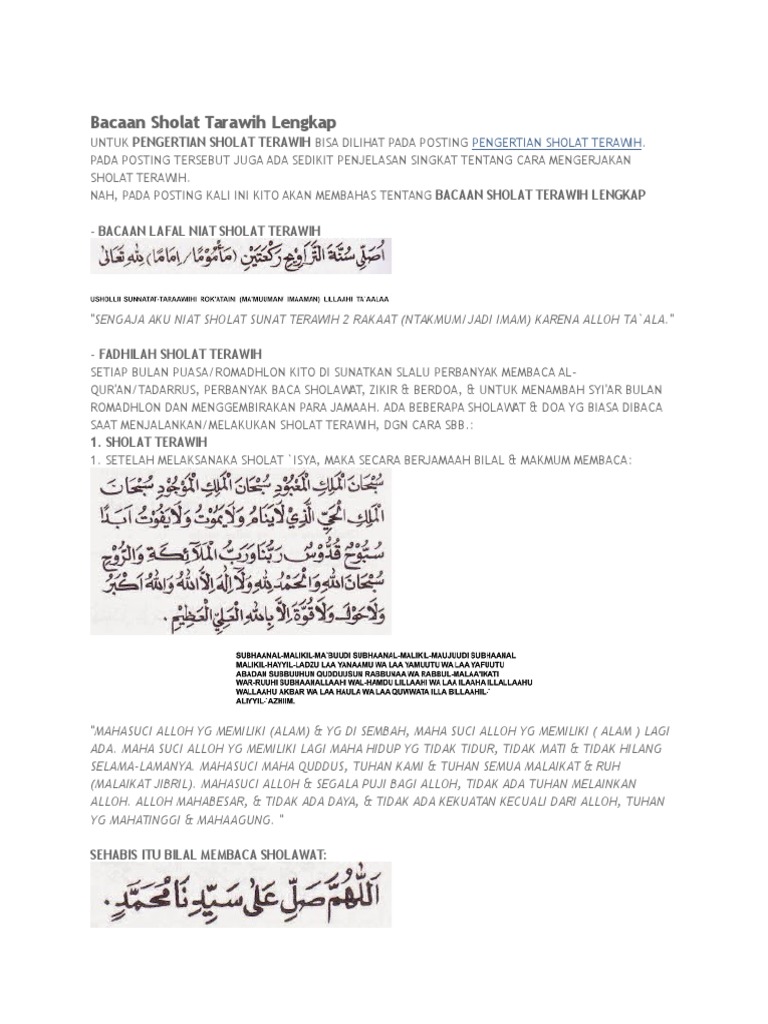 Bacaan Sholat Tarawih Lengkap
UNTUK PENGERTIAN SHOLAT TERAWIH BISA DILIHAT PADA POSTING PENGERTIAN SHOLAT TERAWIH.
PADA POSTING TERSEBUT JUGA ADA SEDIKIT PENJELASAN SINGKAT TENTANG CARA MENGERJAKAN
SHOLAT TERAWIH.
NAH, PADA POSTING KALI INI KITO AKAN MEMBAHAS TENTANG BACAAN SHOLAT TERAWIH LENGKAP
- BACAAN LAFAL NIAT SHOLAT TERAWIH
اُصَلِّى سُنَّةَ التَّرَاوِيْحِ رَكْعَتَيْنِ (مَأْمُوْمًا/اِمَامًا) لِلّٰهِ تَعَالٰى
USHOLLII SUNNATAT-TARAAWIIHI ROK'ATAINI (MA'MUUMAN/ IMAAMAN) LILLAAHI TA`AALAA
"SENGAJA AKU NIAT SHOLAT SUNAT TERAWIH 2 RAKAAT (NTAKMUM/JADI IMAM) KARENA ALLOH TA`ALA."
- FADHILAH SHOLAT TERAWIH
SETIAP BULAN PUASA/ROMADHLON KITO DI SUNATKAN SLALU PERBANYAK MEMBACA AL-
QUR'AN/TADARRUS, PERBANYAK BACA SHOLAWAT, ZIKIR & BERDOA, & UNTUK MENAMBAH SYI'AR BULAN
ROMADHLON DAN MENGGEMBIRAKAN PARA JAMAAH. ADA BEBERAPA SHOLAWAT & DOA YG BIASA DIBACA
SAAT MENJALANKAN/MELAKUKAN SHOLAT TERAWIH, DGN CARA SBB.:
1. SHOLAT TERAWIH
1. SETELAH MELAKSANAKA SHOLAT `ISYA, MAKA SECARA BERJAMAAH BILAL & MAKMUM MEMBACA:
سُبْحَانَ الْمَلِكِ الْمَعْبُوْدِ سُبْحَانَ الْمَلِكِ الْمَوْجُوْدِ سُبْحَانَ
الْمَلِكِ الْحَيِّ الَّذِيْ لَايَنَامُ وَلَايَمُوْتُ وَلَايَفُوْتُ اَبَدًا
سُبُّوْحٌ قُدُّوْسٌ رَبُّنَا وَرَبُّ الْمَلَآئِكَةِ وَالرُّوْحِ
سُبْحَانَ اللهِ وَالْحَمْدُ لِلّٰهِ وَلَآ اِلٰهَ اِلَّا اللهُ وَاللهُ اَكْبَرُ
وَلَاحَوْلَ وَلَاقُوَّةَ اِلَّا بِاللهِ الْعَلِيِّ الْعَظِيْمِ.
SUBHAANAL-MALIKIL-MA`BUUDI SUBHAANAL-MALIKIL-MAUJUUDI SUBHAANAL
MALIKIL-HAYYIL-LADZU LAA YANAAMU WA LAA YAMUUTU WA LAA YAFUUTU
ABADAN SUBBUUHUN QUDDUUSUN RABBUNAA WA RABBUL-MALAA'IKATI
WAR-RUUHI SUBHAANALLAAHI WAL-HAMDU LILLAAHI WA LAA ILAAHA ILLALLAAHU
WALLAAHU AKBAR WA LAA HAULA WA LAA QUWWATA ILLA BILLAAHIL-`
ALIYYIL-`AZHIIM.
"MAHASUCI ALLOH YG MEMILIKI (ALAM) & YG DI SEMBAH, MAHA SUCI ALLOH YG MEMILIKI ( ALAM ) LAGI
ADA. MAHA SUCI ALLOH YG MEMILIKI LAGI MAHA HIDUP YG TIDAK TIDUR, TIDAK MATI & TIDAK HILANG
SELAMA-LAMANYA. MAHASUCI MAHA QUDDUS, TUHAN KAMI & TUHAN SEMUA MALAIKAT & RUH
(MALAIKAT JIBRIL). MAHASUCI ALLOH & SEGALA PUJI BAGI ALLOH, TIDAK ADA TUHAN MELAINKAN
ALLOH. ALLOH MAHABESAR, & TIDAK ADA DAYA, & TIDAK ADA KEKUATAN KECUALI DARI ALLOH, TUHAN
YG MAHATINGGI & MAHAAGUNG. "
SEHABIS ITU BILAL MEMBACA SHOLAWAT:
اَللّٰهُمَّ صَلِّ عَلٰى سَيِّدِنَا مُحَمَّدٍ.